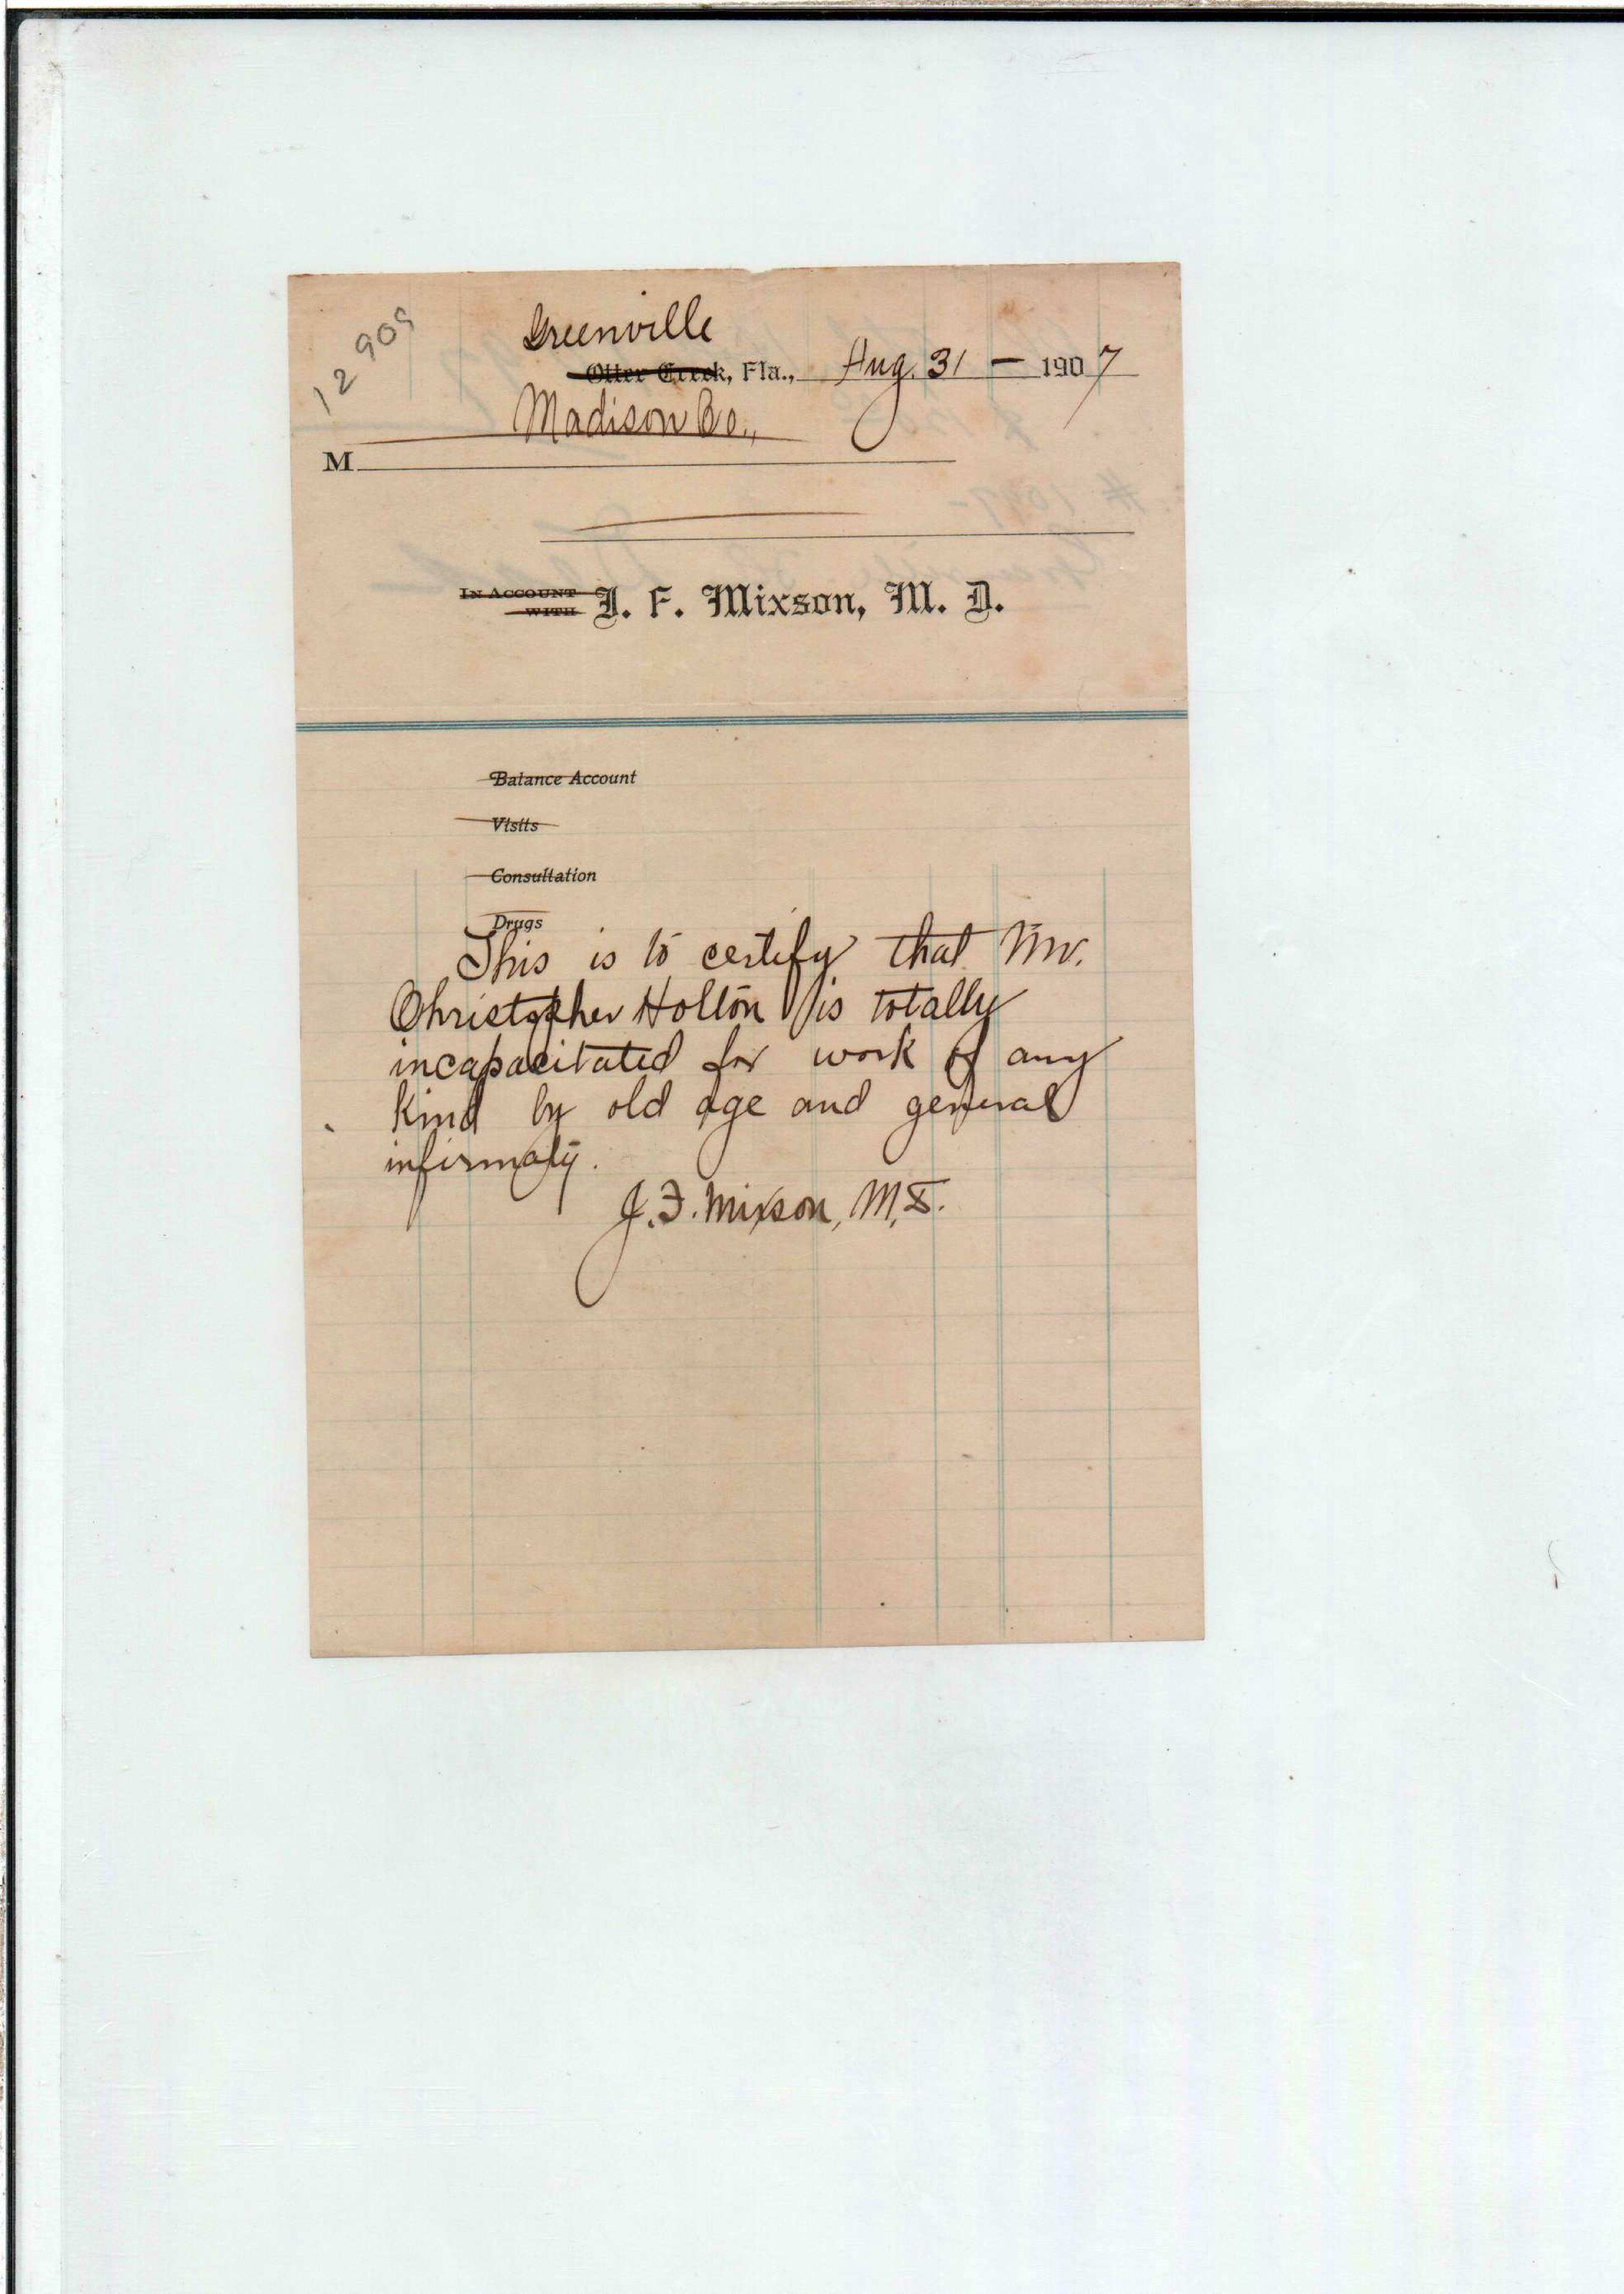 12 909
Greenville
Otter Creek, Fla., Aug. 31 — 1907
Madison Co.,
M
IN ACCOUNT WITH J. F. Mixson, M. D.
Balance Account
Visits
Consultation
Drugs
This is to certify that Mr.
Christopher Holton is totally
incapacitated for work of any
kind by old age and general
infirmaty.
J. F. Mixson, M.D.